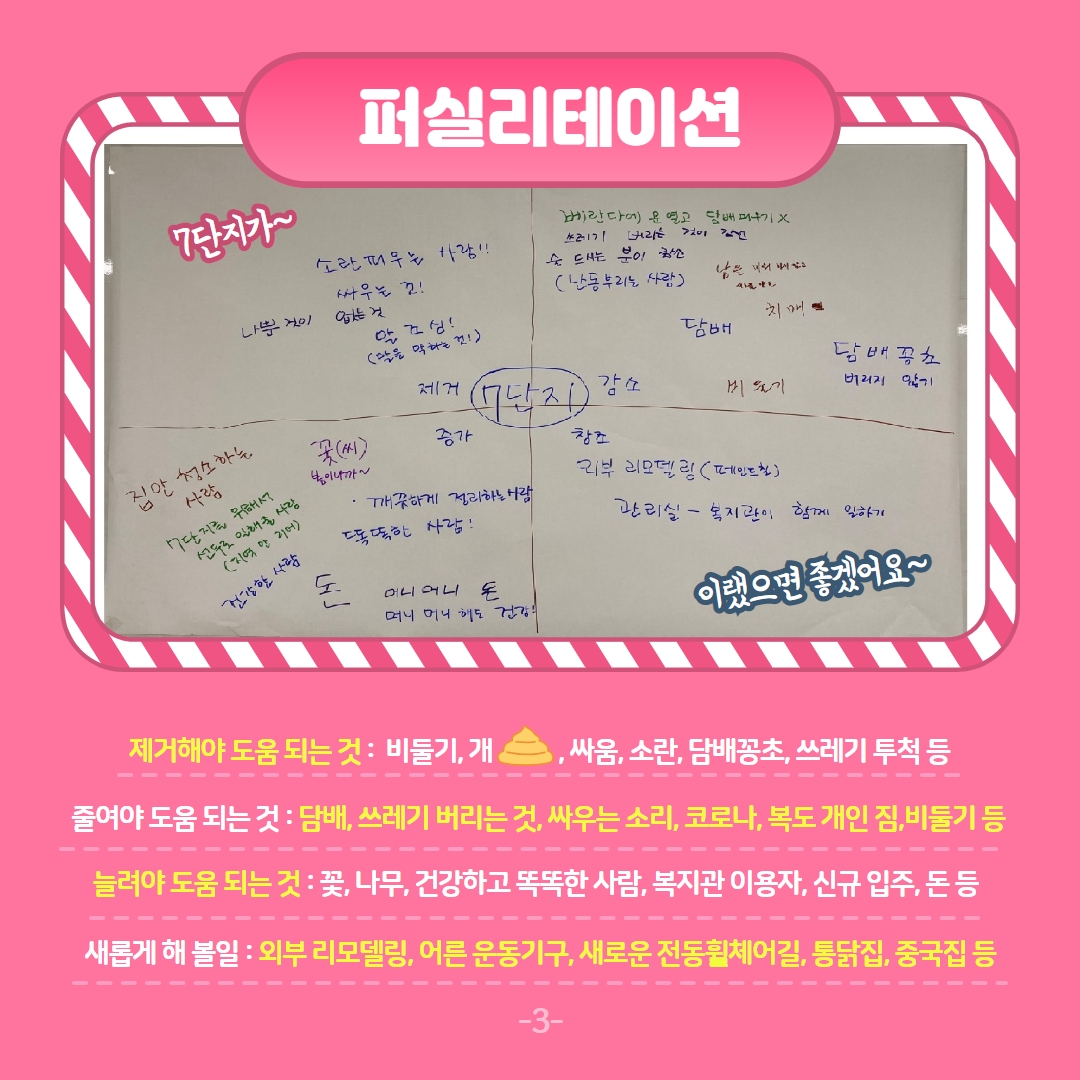 퍼실리테이션
7단지가~
소란피우는 사람!!
싸우는 것!
나쁜 것이 없는 것
말 조심!
(말을 막하는 것!)
제거
베란다에 문 열고 담배피우기 X
쓰레기 버리는 것이 감소
술 드시는 분이 감소
(난동부리는 사람)
치매
담배
담배 꽁초
버리지 않기
비둘기
감소
7단지
증가
꽃(씨)
봄이니까~
집안 청소하는
사람
7단지를 위해서
선두로 일해줄 사람
(지역 안 리더)
건강한 사람
· 깨끗하게 정리하는 사람
똑똑한 사람!
돈
머니머니 돈
머니 머니 해도 건강!
창조
외부 리모델링 (페인트칠)
관리실 - 복지관이 함께 일하기
이랬으면 좋겠어요~
제거해야 도움 되는 것 : 비둘기, 개 , 싸움, 소란, 담배꽁초, 쓰레기 투척 등
줄여야 도움 되는 것 : 담배, 쓰레기 버리는 것, 싸우는 소리, 코로나, 복도 개인 짐,비둘기 등
늘려야 도움 되는 것 : 꽃, 나무, 건강하고 똑똑한 사람, 복지관 이용자, 신규 입주, 돈 등
새롭게 해 볼일 : 외부 리모델링, 어른 운동기구, 새로운 전동휠체어길, 통닭집, 중국집 등
-3-